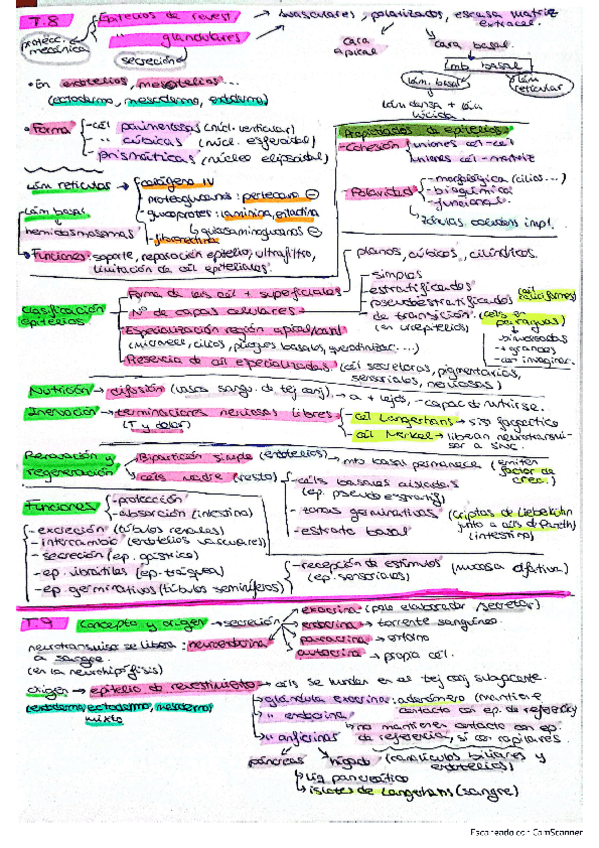 T.8
Epitelios de revest. → avasculares, polarizados, escasa matriz extracel.
" glandulares
protecc. mecánica
secreción
cara apical
cara basal
mb basal
lám. basal
lám reticular
lám densa + lám lúcida
• En endotelios, mesotelios...
(ectodermo, mesodermo, endodermo)
• Forma
- cél paimentosas (núcl. lenticular)
- " cúbicas (núcl. esferoidal)
- " prismáticas (núcleo elipsoidal)
Propiedades de epitelios
- Cohesión
uniones cél-cél
uniones cél-matriz
- Polaridad
- morfológica (cilios...)
- bioquímica
- funcional
lám reticular →
colágeno IV
proteoglucanos: perlecano ⊖
glucoprotes: laminina, entactina
- fibronectina
glucosaminoglucanos ⊖
- lám basal
hemidesmosomas
• Funciones: soporte, reparación epitelio, ultrafiltro,
limitación de cél epiteliales.
Clasificación epitelios
Forma de las cél + superficiales
planos, cúbicos, cilíndricos.
Nº de capas celulares
- simples
- estratificados
- pseudoestratificados (cél caliciformes)
- de transición (céls en paraguas)
(en urotelios)
- binucleadas
- + grandes
Especialización región apical/basal
(microvell, cilios, pliegues basales, queratinizac....)
Presencia de cél especializadas (cél secretoras, pigmentarias, sensoriales, nerviosas)
Nutrición → difusión (vasos sangu. de tej conj), → a + lejos, - capac de nutrirse.
Inervación → terminaciones nerviosas libres
(Tª y dolor)
cél Langerhans → sist fagocítico
cél Merkel → liberan neurotransmisor a SNC.
Renovación y regeneración
Bipartición simple (endotelios) → mb basal permanece (emiten factor de crec.)
céls madre (resto)
- céls basales aisladas
(ep. pseudoestratif)
- zonas germinativas (criptas de Lieberkühn junto a céls de Paneth)
(intestino)
- estrato basal
Funciones
- protección
- absorción (intestino)
- excreción (túbulos renales)
- intercambio (endotelios vasculares)
- secreción (ep. gástrico)
- ep. vibrátiles (ep. tráquea)
- ep. germinativos (túbulos seminíferos)
- recepción de estímulos (mucosa olfativa)
(ep. sensoriales)
T.9
Concepto y origen → secreción
exocrina (polo elaborador/secretor)
endocrina → torrente sanguíneo
paracrina → entorno
autocrina → propia cél.
neurotransmisor se libera: neuroendocrina
a sangre.
(en la neurohipófisis)
origen → epitelio de revestimiento → céls se hunden en el tej conj subyacente.
(endodermo, ectodermo, mesodermo)
mixto
glándula exocrina: adenómero (mantiene contacto con ep. de referencia)
" endocrina
no mantienen contacto con ep. de referencia, sí con capilares.
" anficrinas
páncreas
hígado (canalículos biliares y endotelios)
jug pancreático
islotes de Langerhans (sangre)
Escaneado con CamScanner